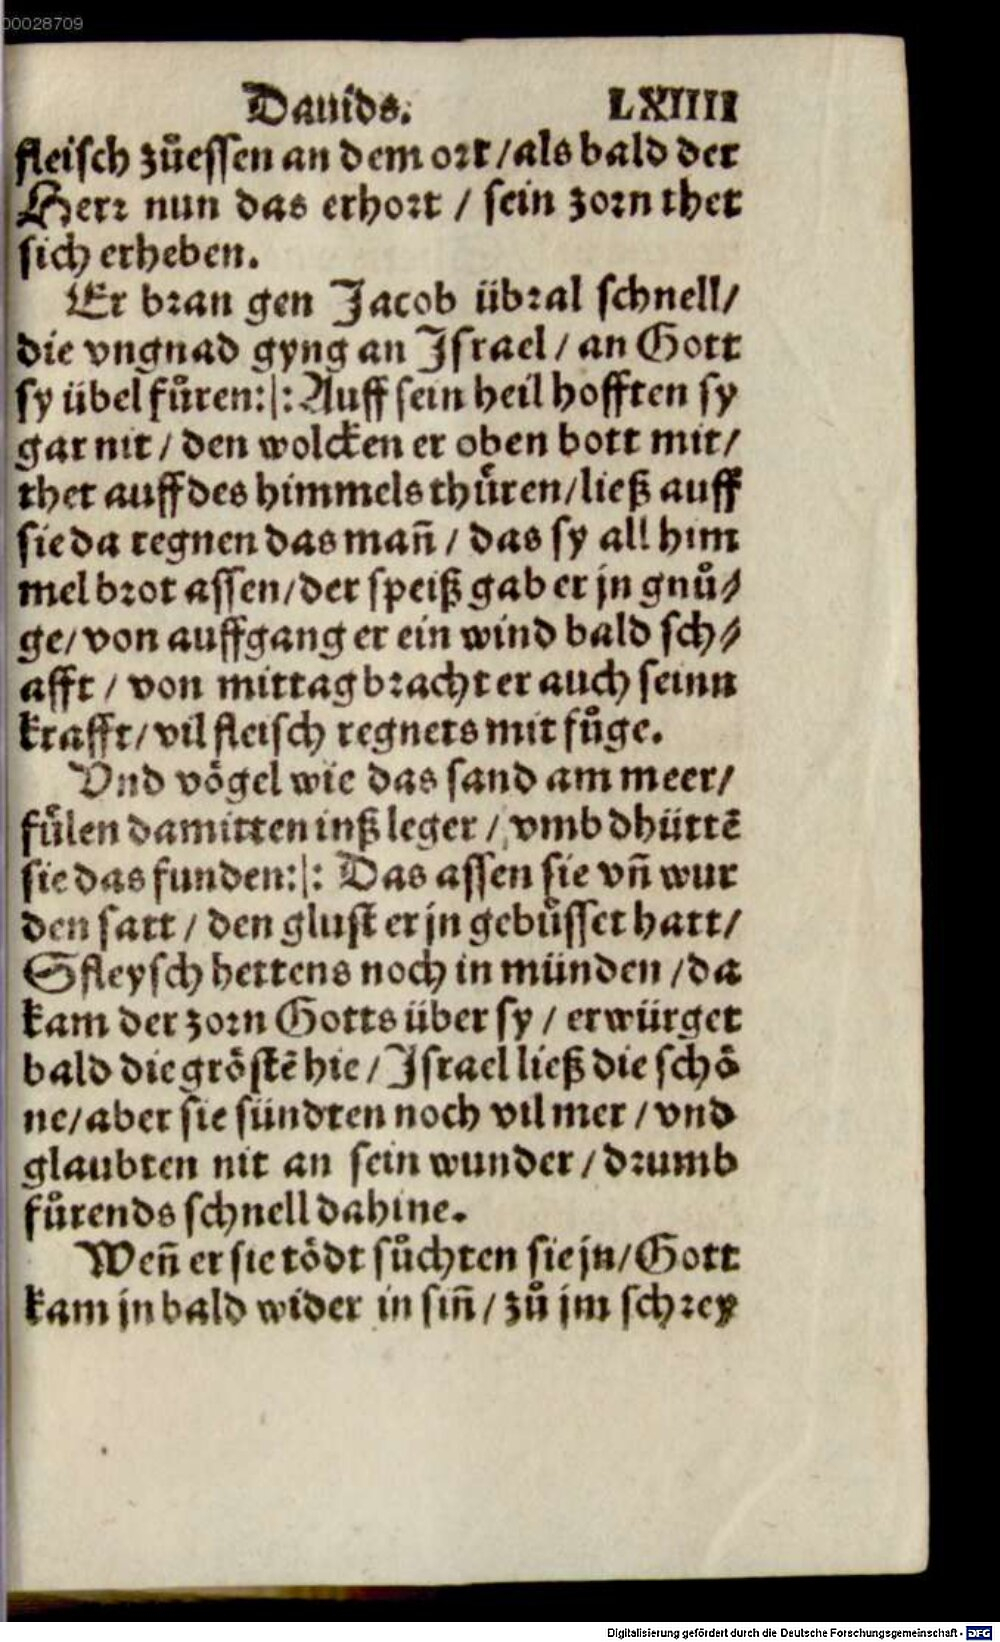 00028709
Dauids. LXIIII
fleisch zůessen an dem ort / als bald der
Herr nun das erhort / sein zorn thet
sich erheben.
Er bran gen Jacob übral schnell /
die vngnad gyng an Israel / an Gott
sy übel fůren:|: Auff sein heil hofften sy
gar nit / den wolcken er oben bott mit /
thet auff des himmels thůren / ließ auff
sie da regnen das mañ / das sy all him
mel brot assen / der speiß gab er jn gnů⸗
ge / von auffgang er ein wind bald sch⸗
afft / von mittag bracht er auch seinn
krafft / vil fleisch regnets mit fůge.
Vnd vögel wie das sand am meer /
fůlen damitten inß leger / vmb dhüttē
sie das funden:|: Das assen sie vñ wur
den satt / den glust er jn gebůsset hatt /
Sfleysch hettens noch in münden / da
kam der zorn Gotts über sy / erwürget
bald die gröstē hie / Israel ließ die schö
ne / aber sie sündten noch vil mer / vnd
glaubten nit an sein wunder / drumb
fůrends schnell dahine.
Weñ er sie tödt sůchten sie jn / Gott
kam jn bald wider in siñ / zů jm schrey
Digitalisierung gefördert durch die Deutsche Forschungsgemeinschaft - DFG